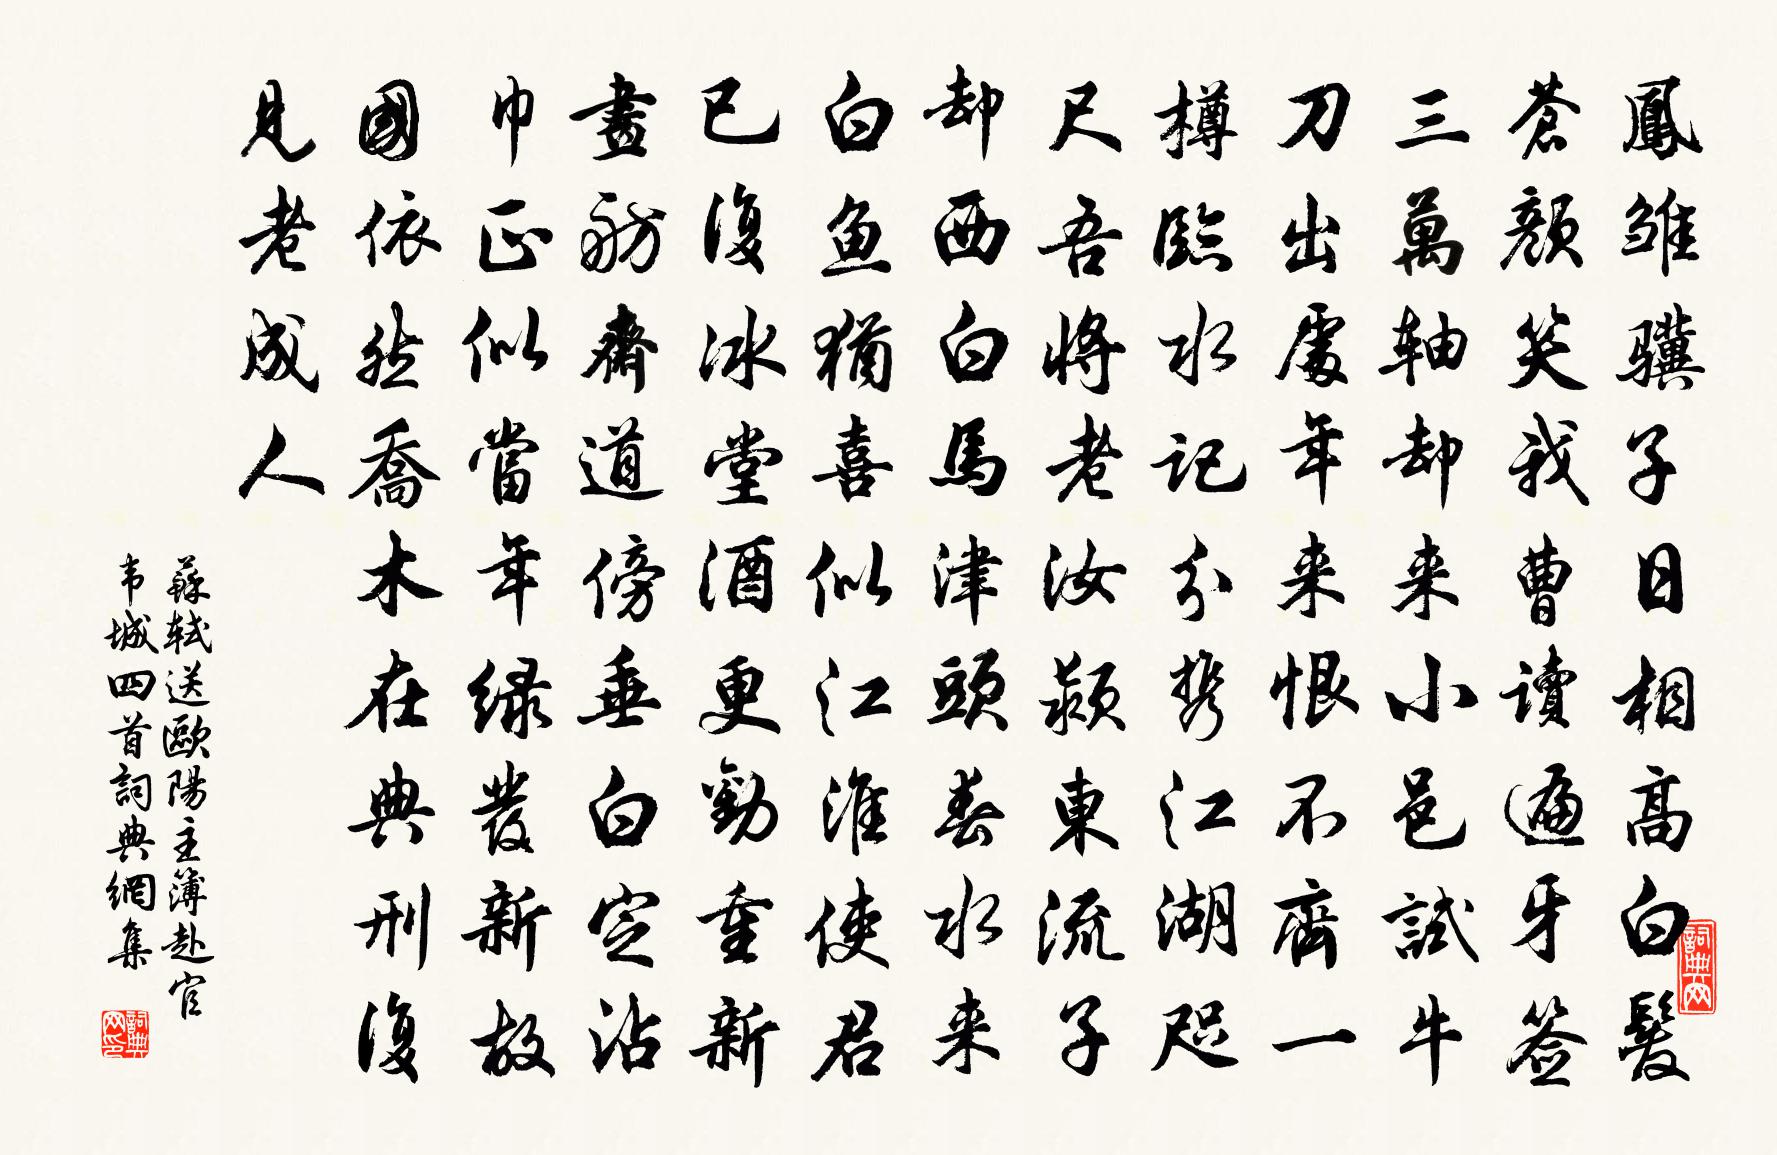 鳳雛骥子日相高白髮
蒼顏笑我曹讀遍牙簽
三萬軸却来小邑試牛
刀出處年来恨不齊一
樽臨水記分携江湖咫
尺吾將老汝潁東流子
却西白馬津頭春水来
白魚猶喜似江淮使君
已復冰堂酒更勸重新
畫舫齋道傍垂白定沾
巾正似當年緑發新故
國依然喬木在典刑復
見老成人
蘇軾送歐陽主簿赴官
韦城四首詞典網集
詞典网
詞典网印